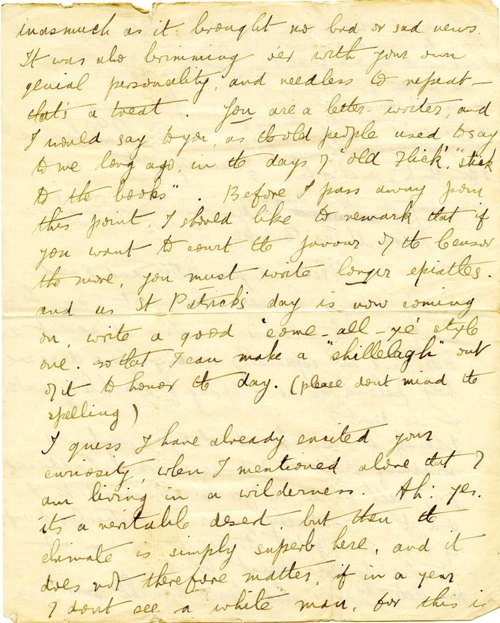 inasmuch as it brought no bad or sad news.
It was also brimming o'er with your own
genial personality, and needless to repeat —
that's a treat. You are a letter-writer, and
I would say to you, as the old people used to say
to me long ago, in the days of 'old Flick', "stick
to the books". Before I pass away from
this point, I should like to remark that if
you want to court the favour of the Censor
the more, you must write longer epistles.
and as St Patrick's day is now coming
on, write a good 'come-all-ye' style
one. so that I can make a "shillelagh" out
of it to honor the day. (please dont mind the
spelling)
I guess I have already excited your
curiosity, when I mentioned above that I
am living in a wilderness. Ah! yes.
it's a veritable desert, but then the
climate is simply superb here, and it
does not therefore matter, if in a year
I dont see a white man, for this is